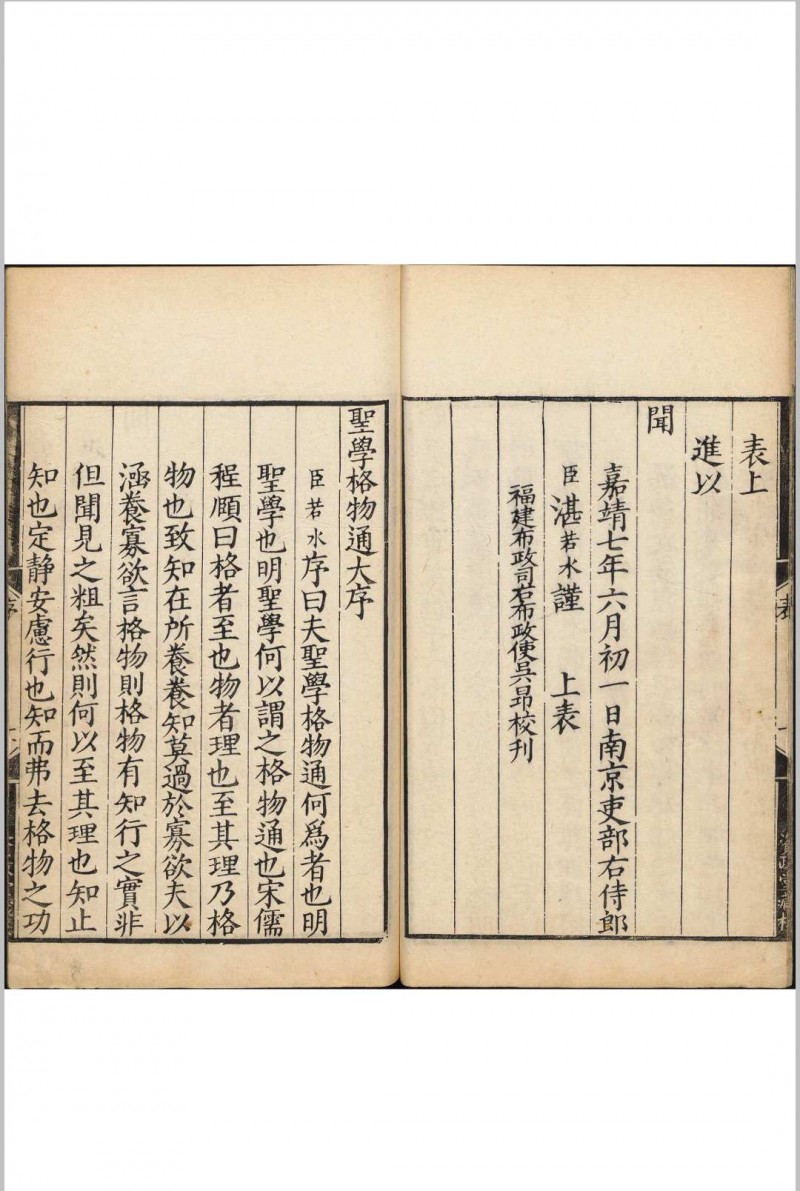 表上
進以
聞
嘉靖七年六月初一日南京吏部右侍郎
臣湛若水謹 上表
福建布政司右布政使吳昂校刊
聖學格物通大序
臣若水序曰夫聖學格物通何爲者也明
聖學也明聖學何以謂之格物通也宋儒
程頤曰格者至也物者理也至其理乃格
物也致知在所養養知莫過於寡欲夫以
涵養寡欲言格物則格物有知行之實非
但聞見之粗矣然則何以至其理也知止
知也定靜安慮行也知而弗去格物之功